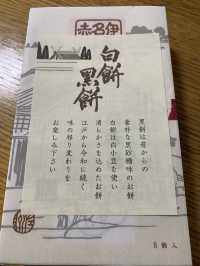 伊勢名物
白餅
黒餅
黒餅は昔からの
素朴な黒砂糖味のお餅
白餅は白小豆を使い
清らかさを込めたお餅
江戸から令和に続く
味の移り変わりを
お楽しみ下さい
8個入